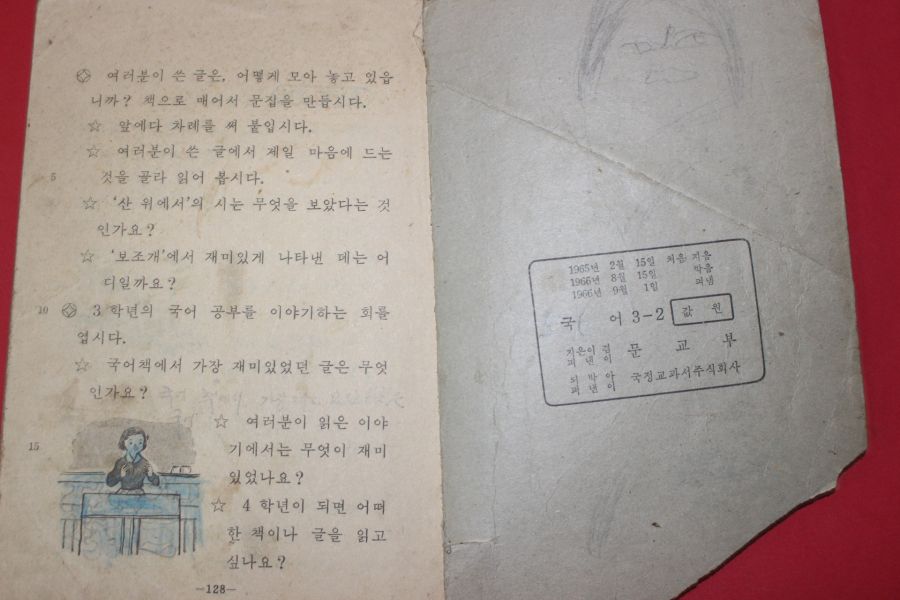 여러분이 쓴 글은, 어떻게 모아 놓고 있읍
니까? 책으로 매어서 문집을 만듭시다.
☆ 앞에다 차례를 써 붙입시다.
☆ 여러분이 쓴 글에서 제일 마음에 드는
5 것을 골라 읽어 봅시다.
☆ '산 위에서'의 시는 무엇을 보았다는 것
인가요?
☆ '보조개'에서 재미있게 나타낸 데는 어
디일까요?
10 3 학년의 국어 공부를 이야기하는 회를
엽시다.
☆ 국어책에서 가장 재미있었던 글은 무엇
인가요?
☆ 여러분이 읽은 이야
15 기에서는 무엇이 재미
있었나요?
☆ 4 학년이 되면 어떠
한 책이나 글을 읽고
싶나요?
—128—
1965년 2월 15일 처음 지음
1966년 8월 15일 박음
1966년 9월 1일 펴냄
국 어 3-2 값 원
지은이 겸 펴낸이 문 교 부
되박아 펴낸이 국정교과서주식회사